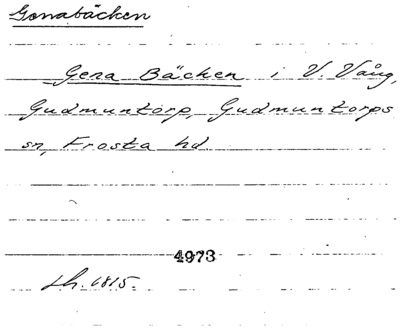 Genabäcken
Gena Bäcken i V. Vång,
Gudmuntorp, Gudmuntorps
sn, Frosta hd
4973
Lh. 1815.